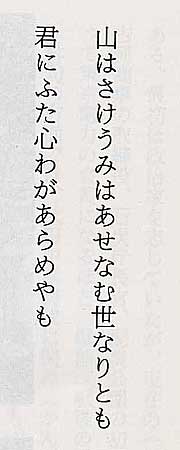 山はさけうみはあせなむ世なりとも
君にふた心わがあらめやも